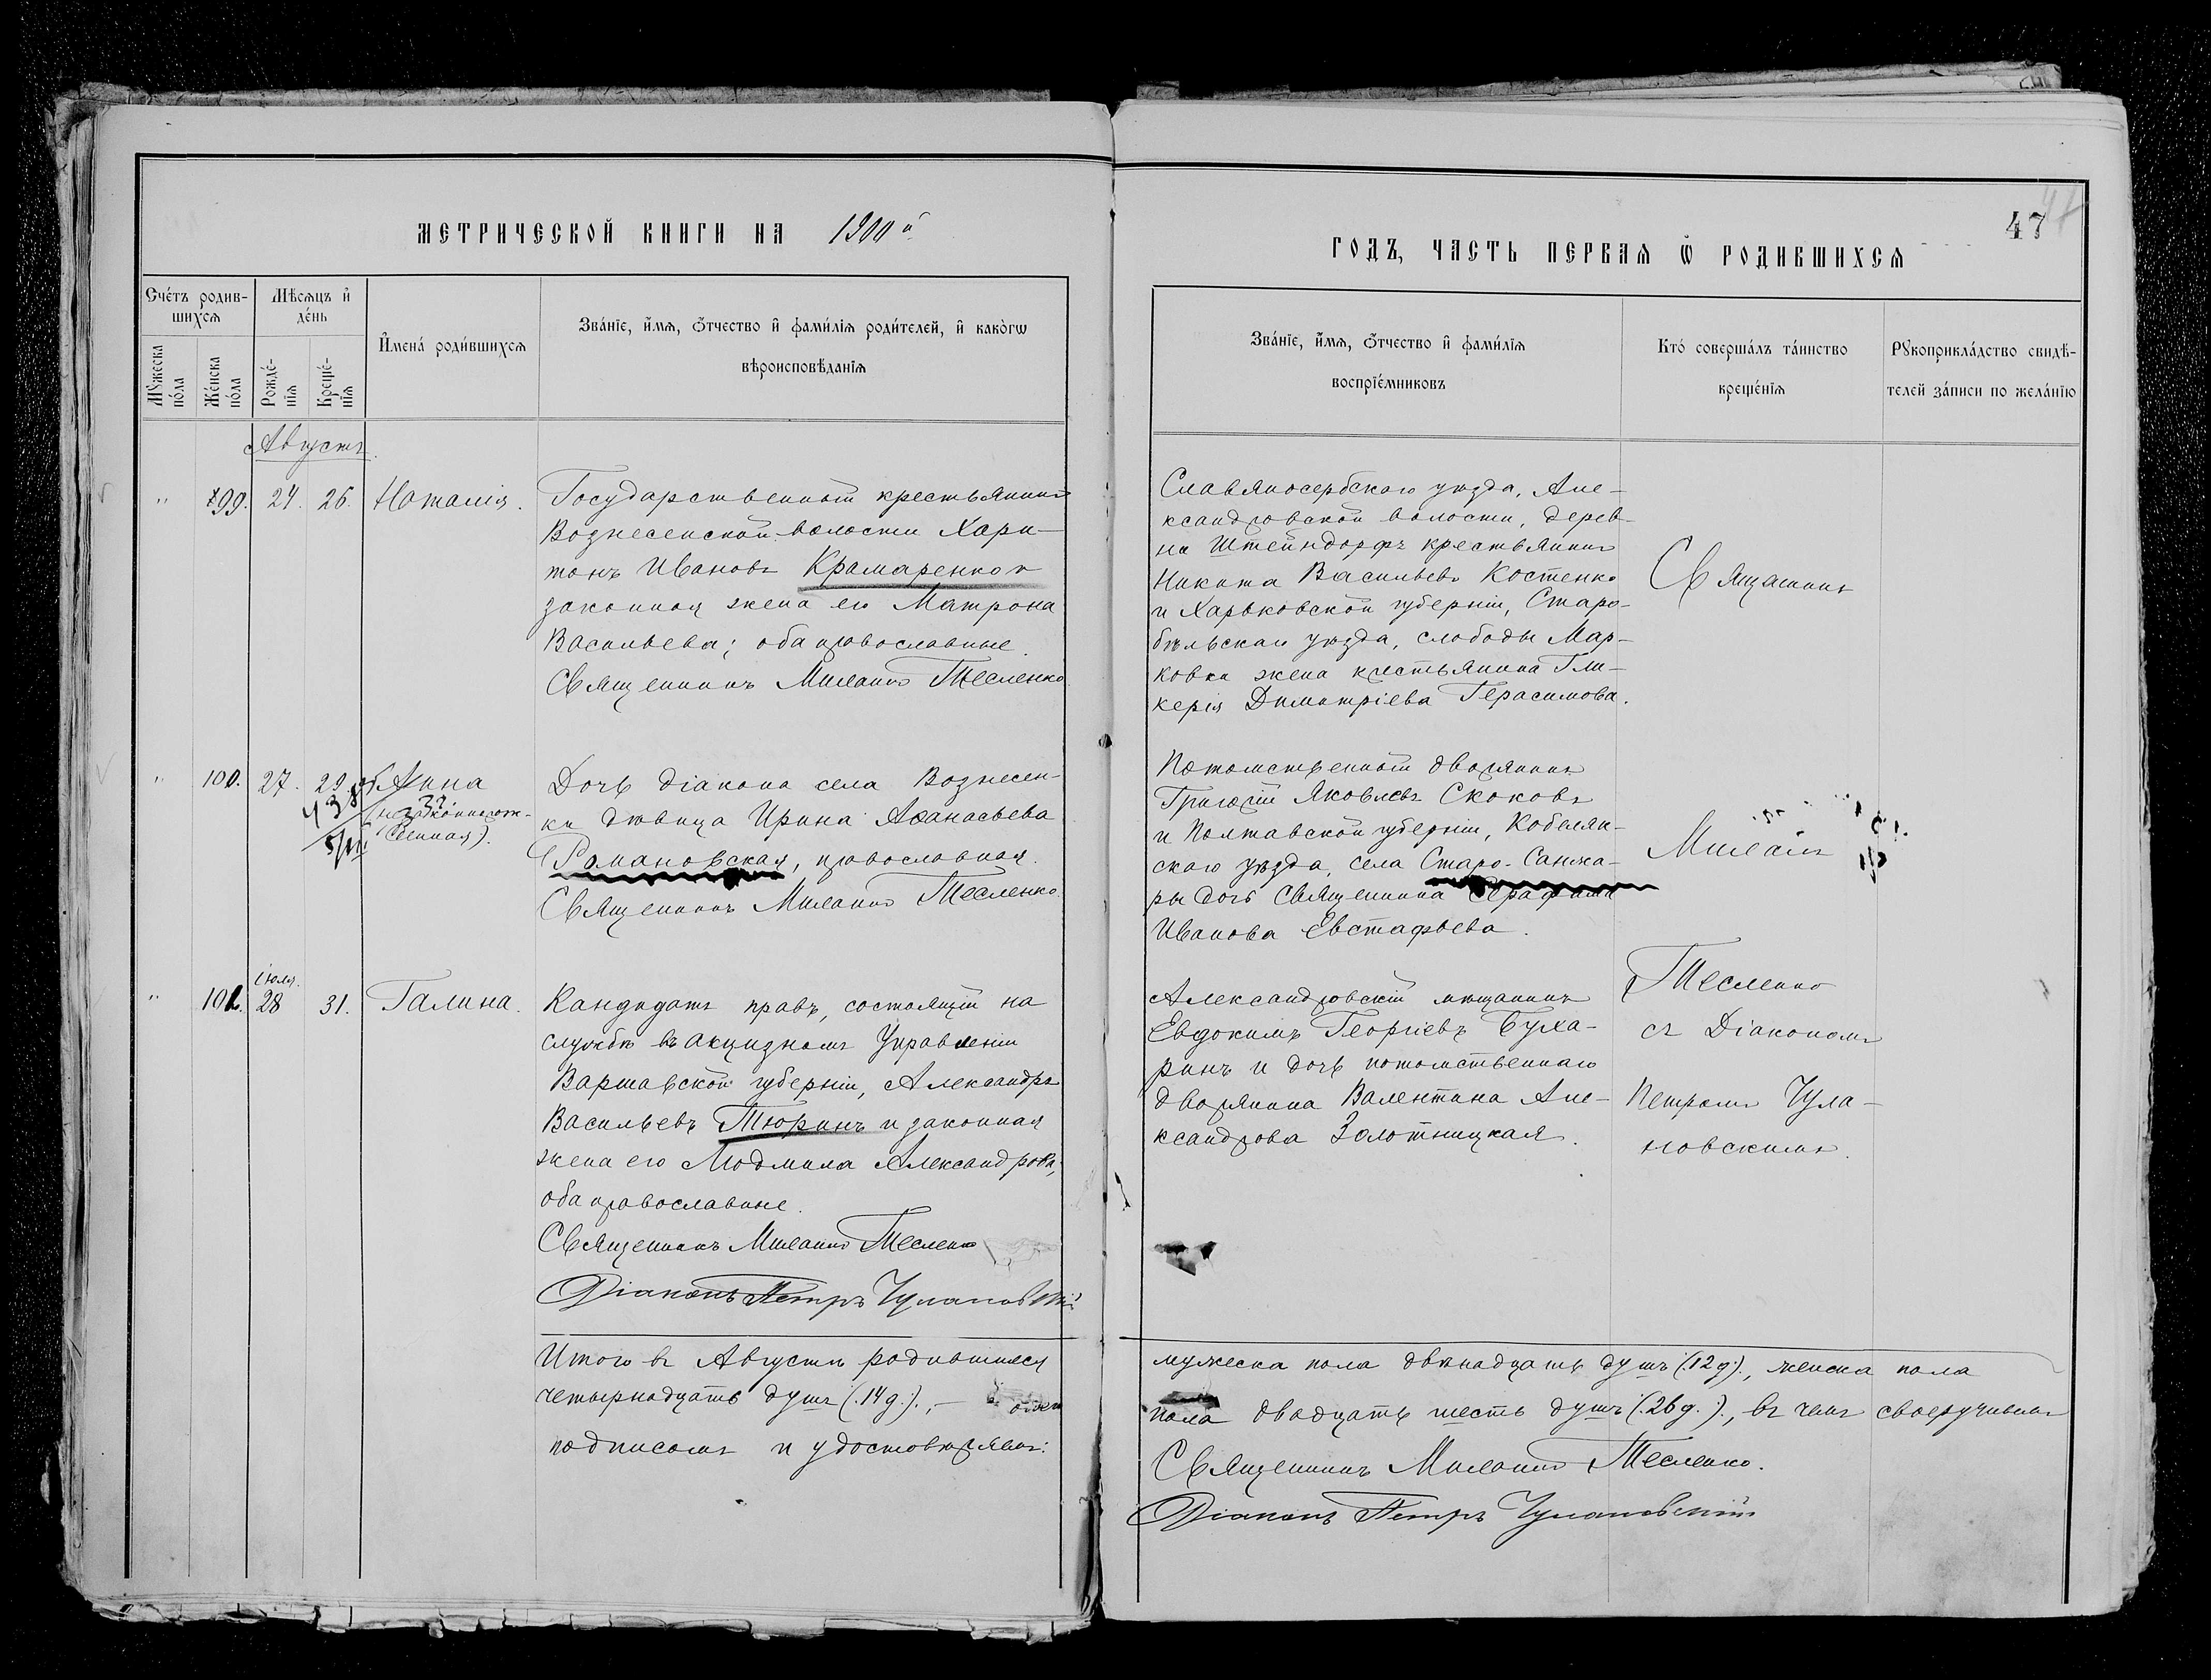 МЕТРИЧЕСКОЙ КНИГИ НА 1900й
Счетъ родив-
шихся
Мѣсяцъ и
день
Имена родившихся
Званіе, имя, отчество и фамилія родителей, и какогѡ
вѣроисповѣданія
Мужеска пола
Женска пола
Рожде-
нія
Креще-
нія
Августъ.
" 99. 24. 26. Наталія.
Государственный крестьянинъ
Вознесенской волости Хари-
тонъ Ивановъ Крамаренко и
законная жена его Матрона
Васильева; оба православные.
Священникъ Милаій Тесленко
" 100. 27. 29. Анна
(незаконнорож-
денная).
Дочь діакона села Вознесен-
ки дѣвица Ирина Аѳанасьева
Романовская, православная.
Священникъ Тесленко
" 101. Іюля. 28 31. Галина.
Кандидатъ правъ, состоящій на
службѣ въ акцизномъ Управленіи
Варшавской губерніи, Александръ
Васильевъ Тюринъ и законная
жена его Людмила Александрова,
оба православные.
Священникъ Тесленко
Діаконъ Петръ Чулановскій
Итого въ Августѣ родившихся
четырнадцать душъ (14 д.),
подписомъ и удостовѣряемъ:
47
ГОДЪ, ЧАСТЬ ПЕРВАЯ Ѡ РОДИВШИХСЯ
Званіе, имя, отчество и фамилія
воспріемниковъ
Кто совершалъ таинство
крещенія
Рукоприкладство свидѣ-
телей записи по желанію
Славяносербскаго уѣзда, Але-
ксандровской волости, дерев-
ни Штейндорфъ крестьянинъ
Никита Васильевъ Костенко
и Харьковской губерніи, Старо-
бѣльскаго уѣзда, слободы Мар-
ковки жена крестьянина Гли-
керія Димитріева Герасимова.
Потомственный дворянинъ
Григорій Яковлевъ Скоковъ
и Полтавской губерніи, Кобеляк-
скаго уѣзда, села Старо-Санжа-
ры дочь Священника Серафима
Иванова Евстафьева.
Александровскій мѣщанинъ
Евдокимъ Георгіевъ Буха-
ринъ и дочь потомственнаго
дворянина Валентина Але-
ксандрова Золотницкая.
Священникъ
Тесленко
съ Діакономъ
Петромъ Чула-
новскимъ.
мужеска пола двѣнадцать душъ (12 д.), женска пола
пола двадцать шесть душъ (26 д.), въ чемъ своеручнымъ
Священникъ Тесленко.
Діаконъ Петръ Чулановскій